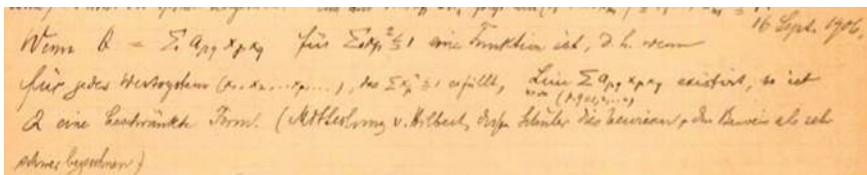 16 Sept. 1906.
Wenn Q = Σ a_pq x_p x_q für Σ x_p² ≤ 1 eine Funktion ist, d.h. wenn
für jedes Wertsystem (x₁, x₂, ... x_p, ...), das Σ x_p² ≤ 1 erfüllt, Lim Σ a_pq x_p x_q existirt, so ist
n=∞ (p,q=1,2,...n)
Q eine beschränkte Form. (Mittheilung v. Hilbert, dessen Schüler dies bewiesen, den Beweis als sehr
schwer bezeichnen)